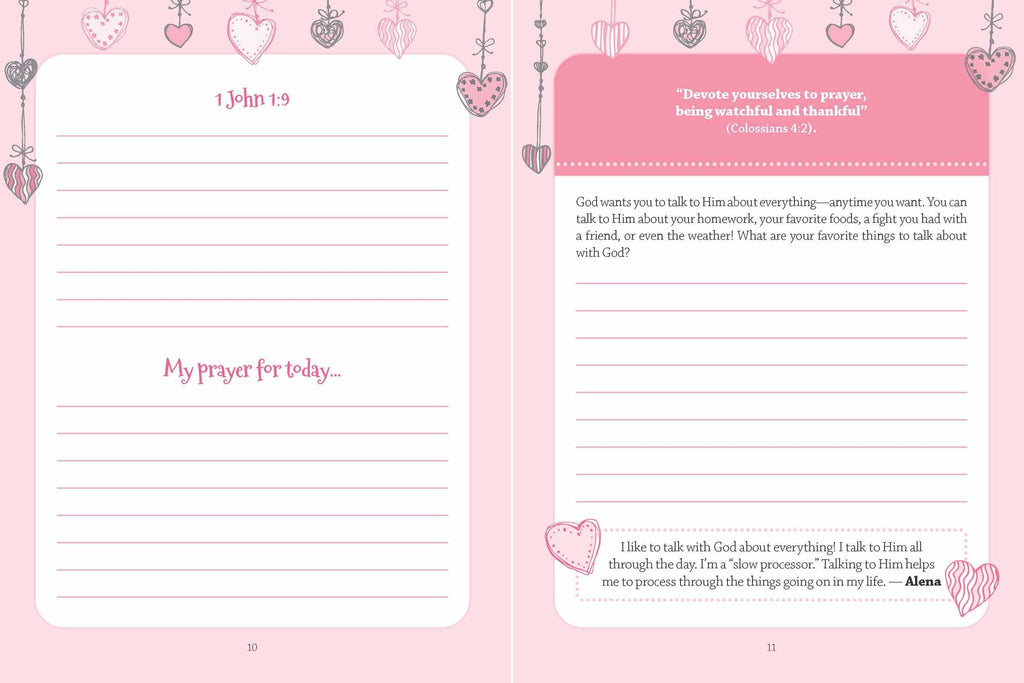 1 John 1:9
My prayer for today...
10
“Devote yourselves to prayer,
being watchful and thankful”
(Colossians 4:2).
God wants you to talk to Him about everything—anytime you want. You can
talk to Him about your homework, your favorite foods, a fight you had with
a friend, or even the weather! What are your favorite things to talk about
with God?
I like to talk with God about everything! I talk to Him all
through the day. I’m a “slow processor.” Talking to Him helps
me to process through the things going on in my life. — Alena
11